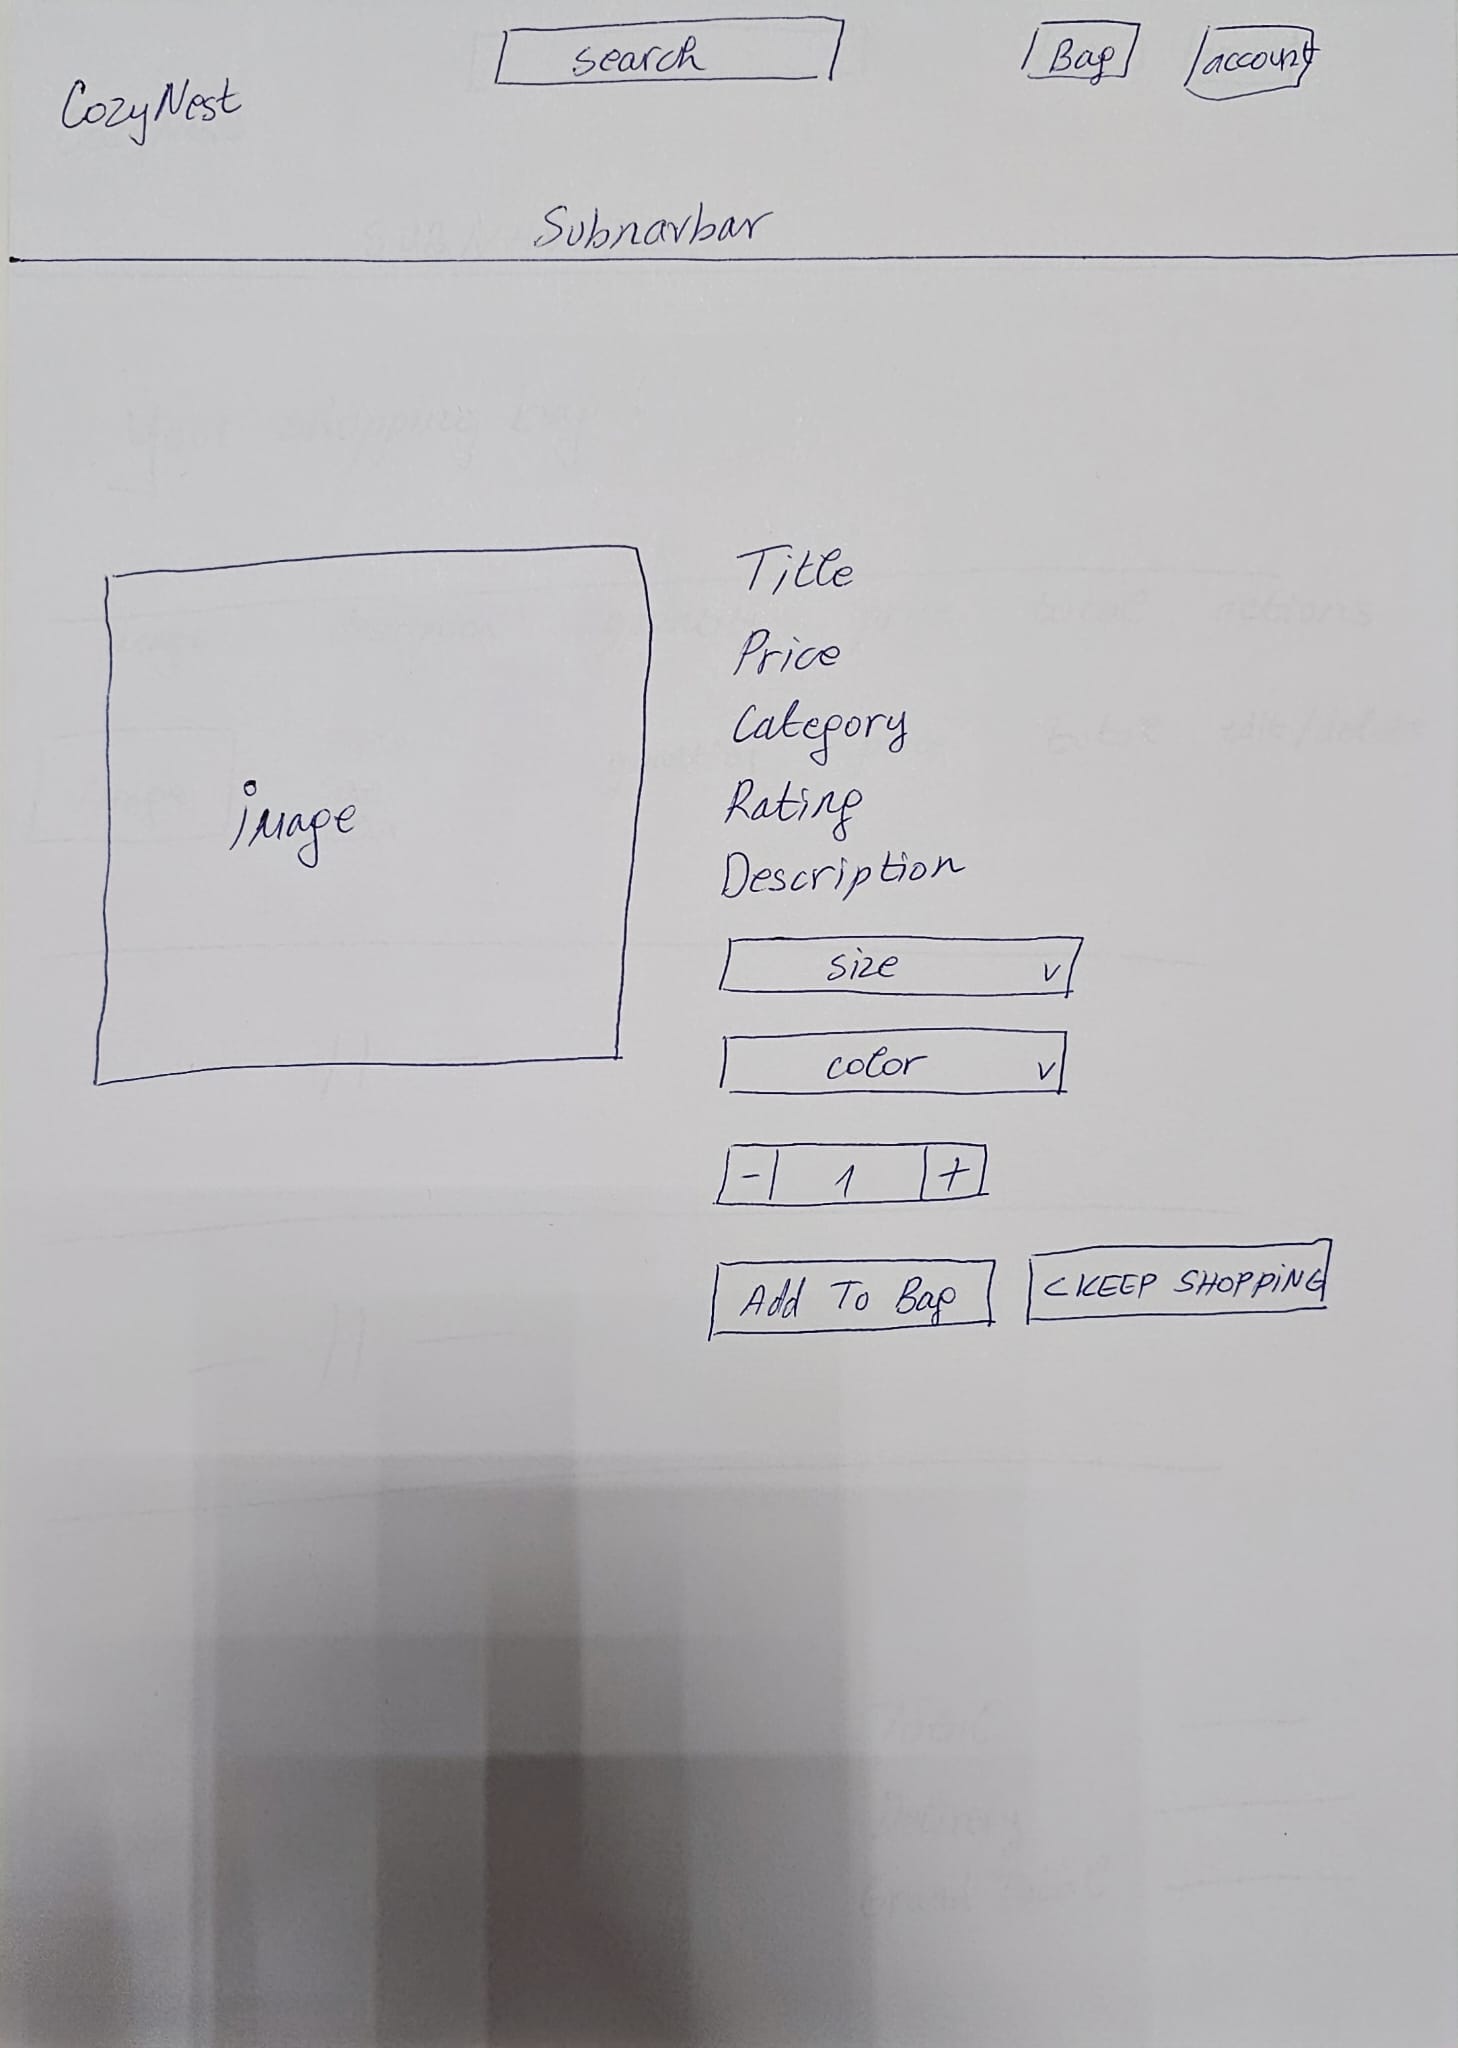 search
Bag
account
CozyNest
Subnavbar
image
Title
Price
Category
Rating
Description
size v
color v
- 1 +
Add To Bag
< KEEP SHOPPING